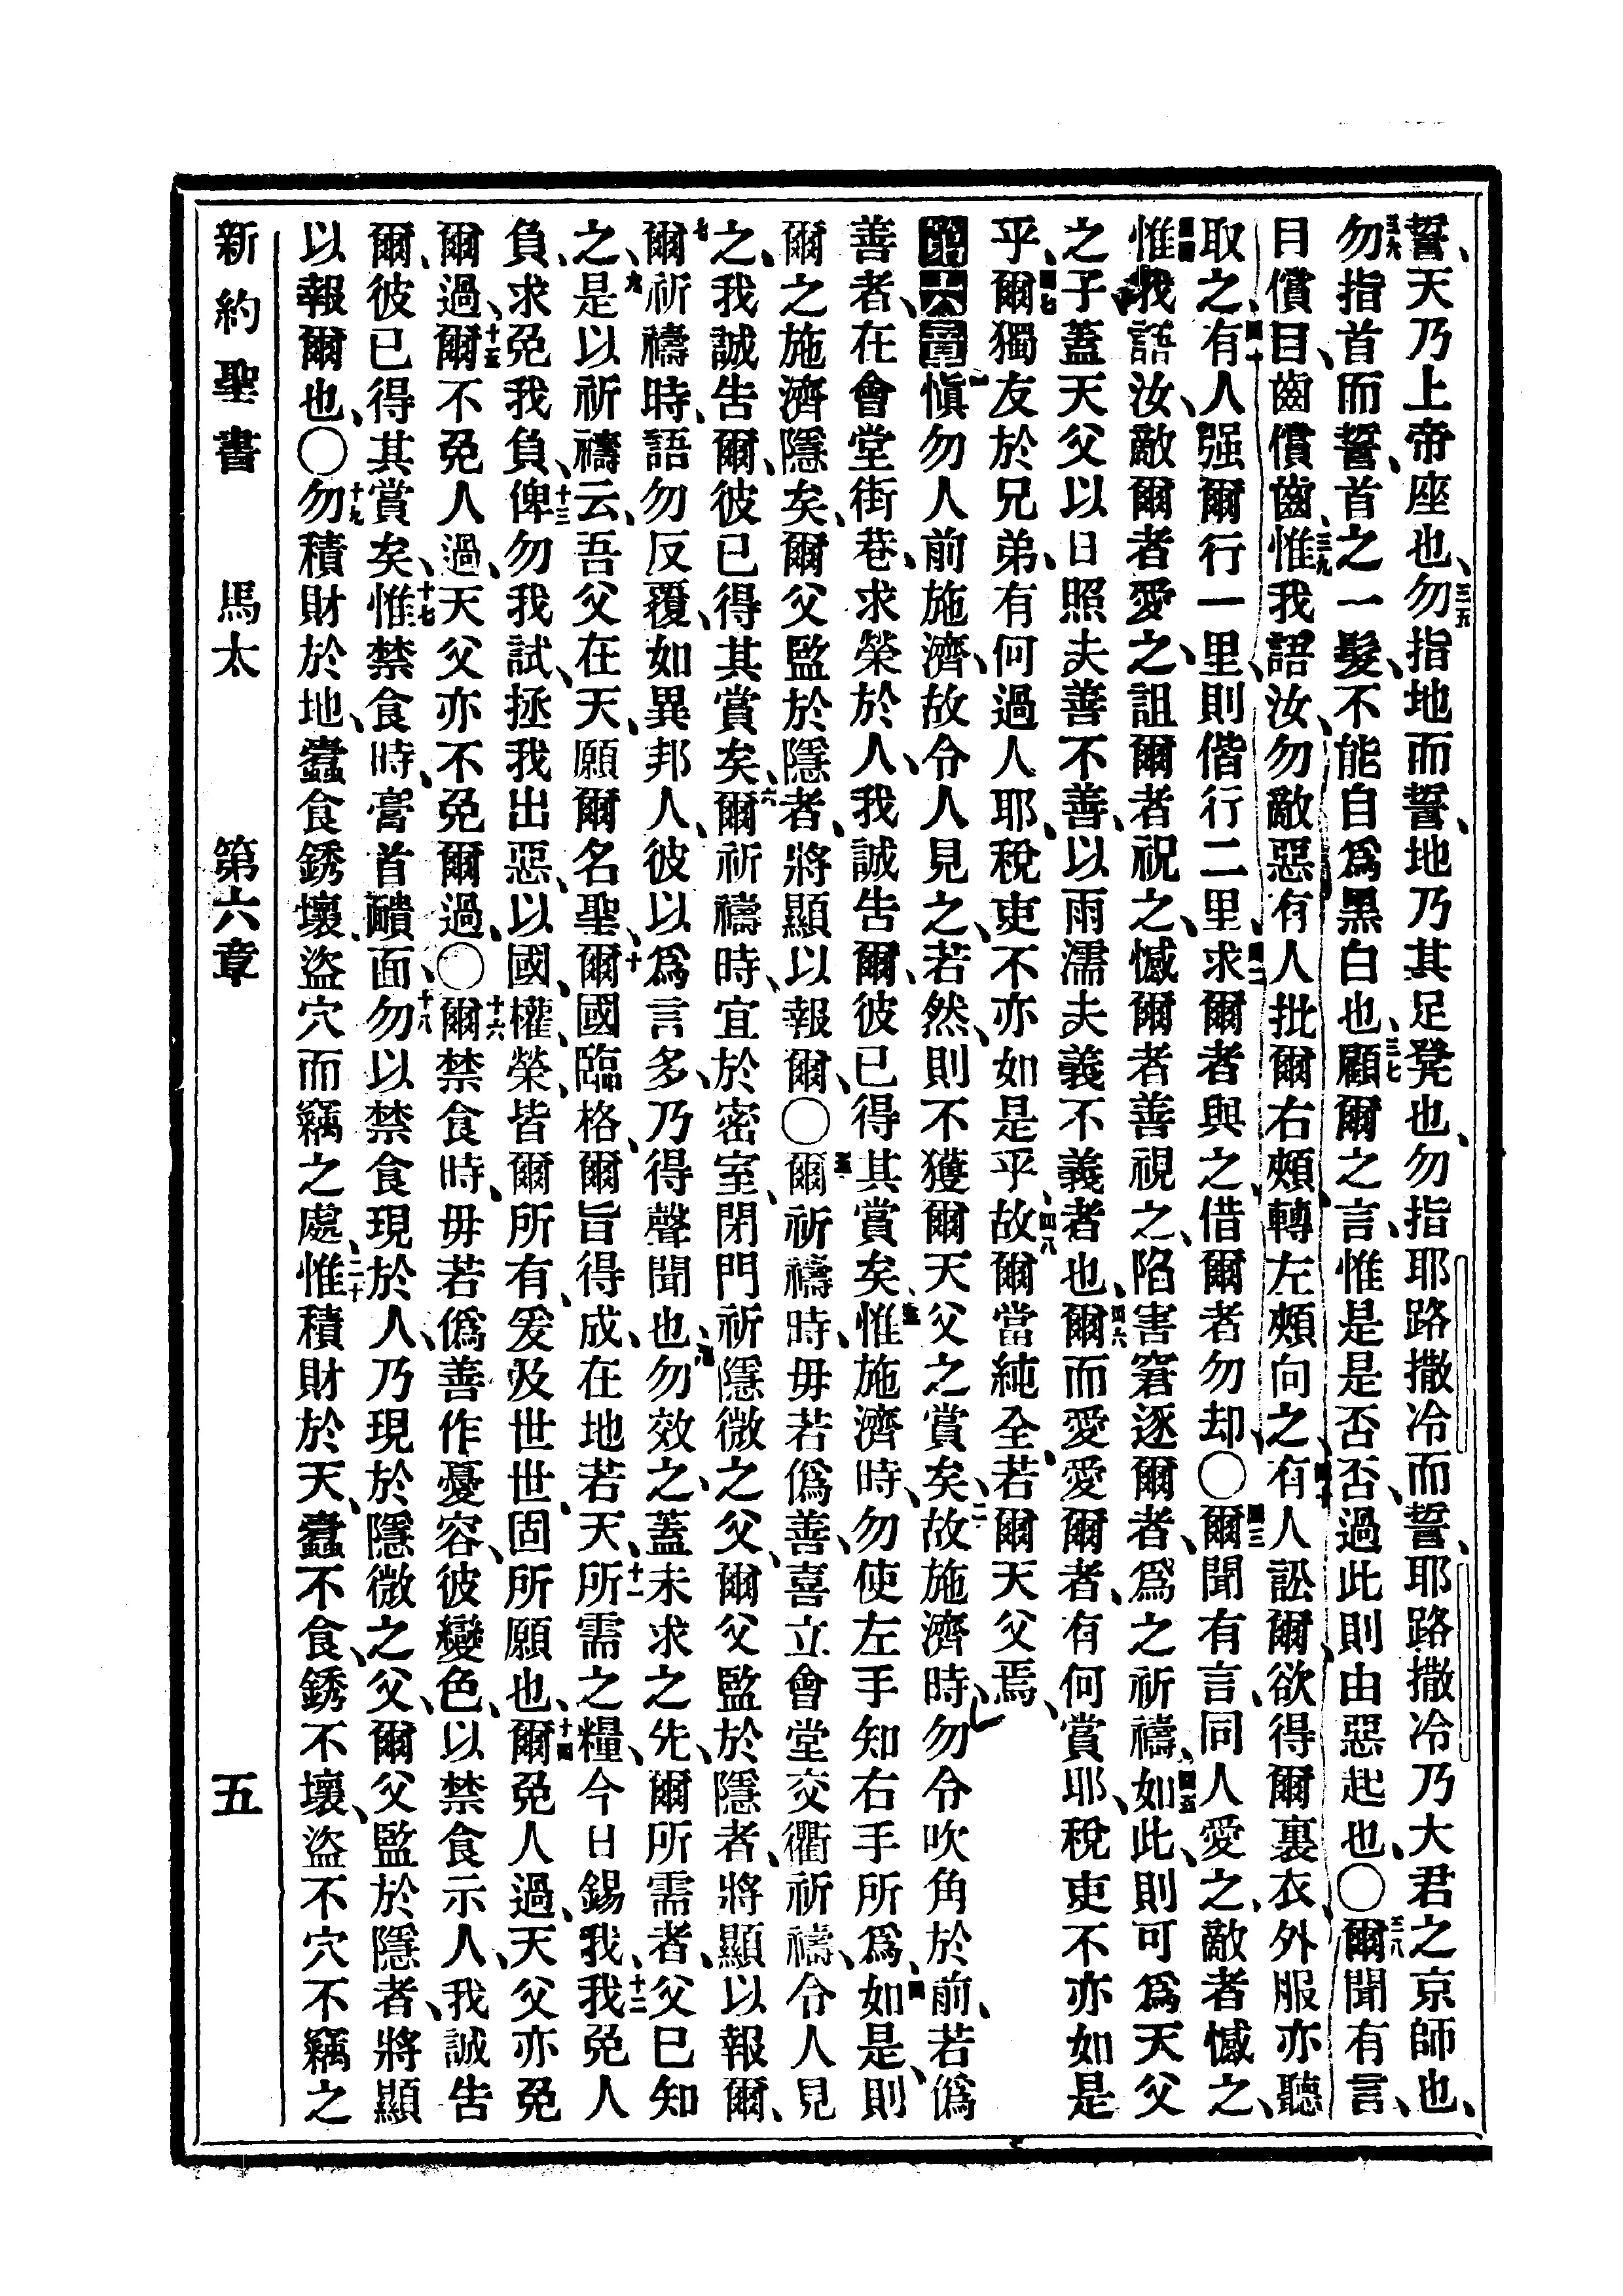 誓、天乃上帝座也、三五勿指地而誓、地乃其足凳也、勿指耶路撒冷而誓、耶路撒冷乃大君之京師也、
三六勿指首而誓、首之一髮、不能自爲黑白也、三七顧爾之言、惟是是否否、過此則由惡起也、〇三八爾聞有言、
目償目、齒償齒、三九惟我語汝、勿敵惡、有人批爾右頰、轉左頰向之、四十有人訟爾、欲得爾裏衣、外服亦聽
取之、四一有人强爾行一里、則偕行二里、四二求爾者與之、借爾者勿却、〇四三爾聞有言、同人愛之、敵者憾之、
四四惟我語汝、敵爾者愛之、詛爾者祝之、憾爾者善視之、陷害窘逐爾者、爲之祈禱、四五如此、則可爲天父
之子、蓋天父以日照夫善不善、以雨濡夫義不義者也、四六爾而愛愛爾者、有何賞耶、稅吏不亦如是
乎、四七爾獨友於兄弟、有何過人耶、稅吏不亦如是乎、四八故爾當純全、若爾天父焉、
第六章 一愼勿人前施濟、故令人見之、若然、則不獲爾天父之賞矣、二故施濟時、勿令吹角於前、若僞
善者、在會堂街巷、求榮於人、我誠告爾、彼已得其賞矣、三惟施濟時、勿使左手知右手所爲、四如是、則
爾之施濟隱矣、爾父監於隱者、將顯以報爾、〇五爾祈禱時、毋若僞善、喜立會堂交衢祈禱、令人見
之、我誠告爾、彼已得其賞矣、六爾祈禱時、宜於密室、閉門祈隱微之父、爾父監於隱者、將顯以報爾、
七爾祈禱時、語勿反覆、如異邦人、彼以爲言多、乃得聲聞也、八勿效之、蓋未求之先、爾所需者、父已知
之、九是以祈禱云、吾父在天、願爾名聖、十爾國臨格、爾旨得成、在地若天、十一所需之糧、今日錫我、十二我免人
負、求免我負、十三俾勿我試、拯我出惡、以國、權、榮、皆爾所有、爰及世世、固所願也、十四爾免人過、天父亦免
爾過、十五爾不免人過、天父亦不免爾過、〇十六爾禁食時、毋若僞善作憂容、彼變色、以禁食示人、我誠告
爾、彼已得其賞矣、十七惟禁食時、膏首靧面、十八勿以禁食現於人、乃現於隱微之父、爾父監於隱者、將顯
以報爾也、〇十九勿積財於地、蠹食銹壞、盜穴而竊之處、二十惟積財於天、蠹不食、銹不壞、盜不穴不竊之
新約聖書 馬太 第六章 五